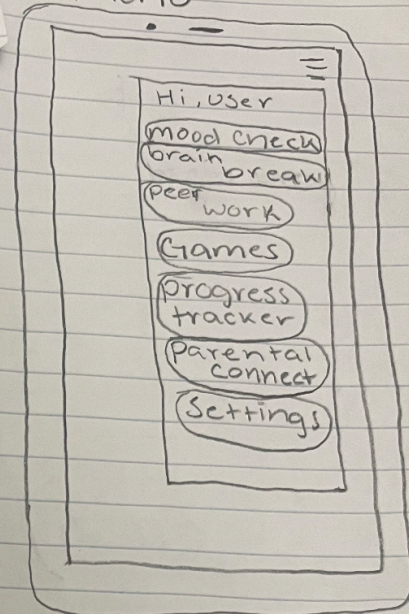 Hi, User
mood check
brain
break
peer
work
Games
progress
tracker
parental
connect
Settings